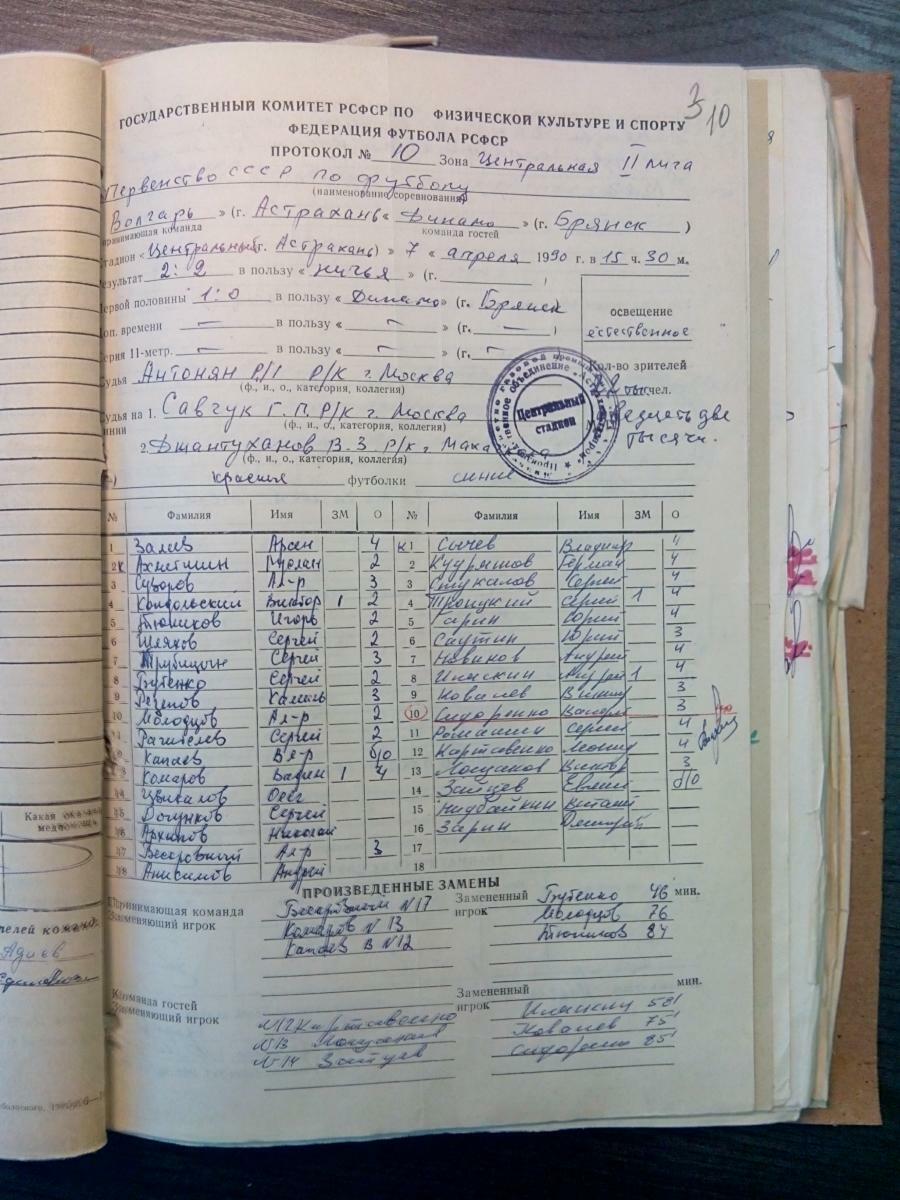 3
10
ГОСУДАРСТВЕННЫЙ КОМИТЕТ РСФСР ПО ФИЗИЧЕСКОЙ КУЛЬТУРЕ И СПОРТУ
ФЕДЕРАЦИЯ ФУТБОЛА РСФСР
ПРОТОКОЛ № 10 Зона Центральная II лига
Первенство СССР по футболу
(наименование соревнования)
Волгарь » (г. Астрахань « Динамо » (г. Брянск )
команда команда гостей
Стадион « Центральный (г. Астрахань) » 7 « апреля 1990 г. в 15 ч. 30 м.
Результат 2:2 в пользу « ничья » (г.
Первой половины 1:0 в пользу « Динамо» (г. Брянск
освещение
Доп. времени — в пользу « — » (г. — )
естественное
Серия 11-метр. — в пользу « — » (г. —
Кол-во зрителей
Судья Антонян Р/Г Р/К г. Москва
тыс. чел.
(ф., и., о., категория, коллегия)
Судья на 1. Савчук Г. П. Р/К г. Москва
линии (ф., и., о., категория, коллегия)
тысячи.
2. Джантуханов В. З Р/К г. Маха
(ф., и., о., категория, коллегия)
Центральный
стадион
красные футболки синие
№ Фамилия Имя ЗМ О № Фамилия Имя ЗМ О
1 Залев Арсен 4 к 1 Сычев Владимир 4
2к Ахметшин Руслан 2 2 Кудряшов Герман 4
3 Суворов Ал-р 3 3 Стукалов Сергей 4
4 Виктор 1 2 4 Троицкий Сергей 1 4
5 Тюпиков Игорь 2 5 Гарин Юрий 4
6 Шляхов Сергей 2 6 Саутин Юрий 3
7 Трубицин Сергей 3 7 Новиков Андрей 4
8 Бутенко Сергей 2 8 Андрей 1 4
9 Камиль 3 9 Ковалев 3
10 Молодцов Ал-р 2 10 Сидоренко Валерий 3
Сергей 2 11 Романишин Сергей 4
Капаев В-р б/о 12 Картавенко Леонид 4
13 Комаров Вадим 1 4 13 Виктор 3
14 Олег 14 Зайцев Евгений б/о
15 Догунков Сергей 15 Виталий
16 Архипов Николай 16 Зверин Дмитрий
17 Бескровный Ал-р 3 17
18 Анисимов Андрей 18
ПРОИЗВЕДЕННЫЕ ЗАМЕНЫ
Принимающая команда Бескровный N 17 Замененный Бутенко 46 мин.
Заменяющий игрок Комаров N 13 игрок Молодцов 76
Капаев В N 12 Тюпиков 84
Команда гостей Замененный мин.
Заменяющий игрок N 12 Картавенко игрок 58'
N 13 Ковалев 75'
N 14 Зайцев Сидоренко 85'
Какая оказана
медпомощь